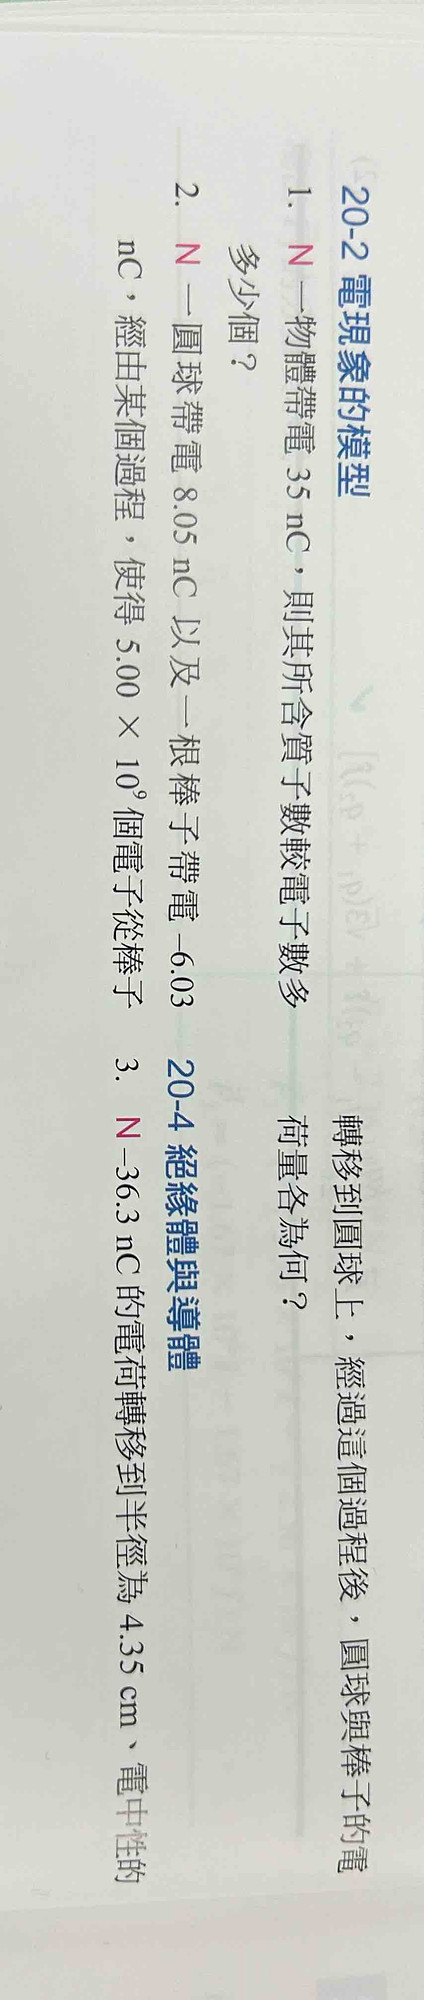 20-2 電現象的模型
1. N 一物體帶電 35 nC，則其所含質子數較電子數多
多少個？
2. N 一圓球帶電 8.05 nC 以及一根棒子帶電 –6.03
nC，經由某個過程，使得 5.00 × 10⁹ 個電子從棒子
轉移到圓球上，經過這個過程後，圓球與棒子的電
荷量各為何？
20-4 絕緣體與導體
3. N –36.3 nC 的電荷轉移到半徑為 4.35 cm、電中性的